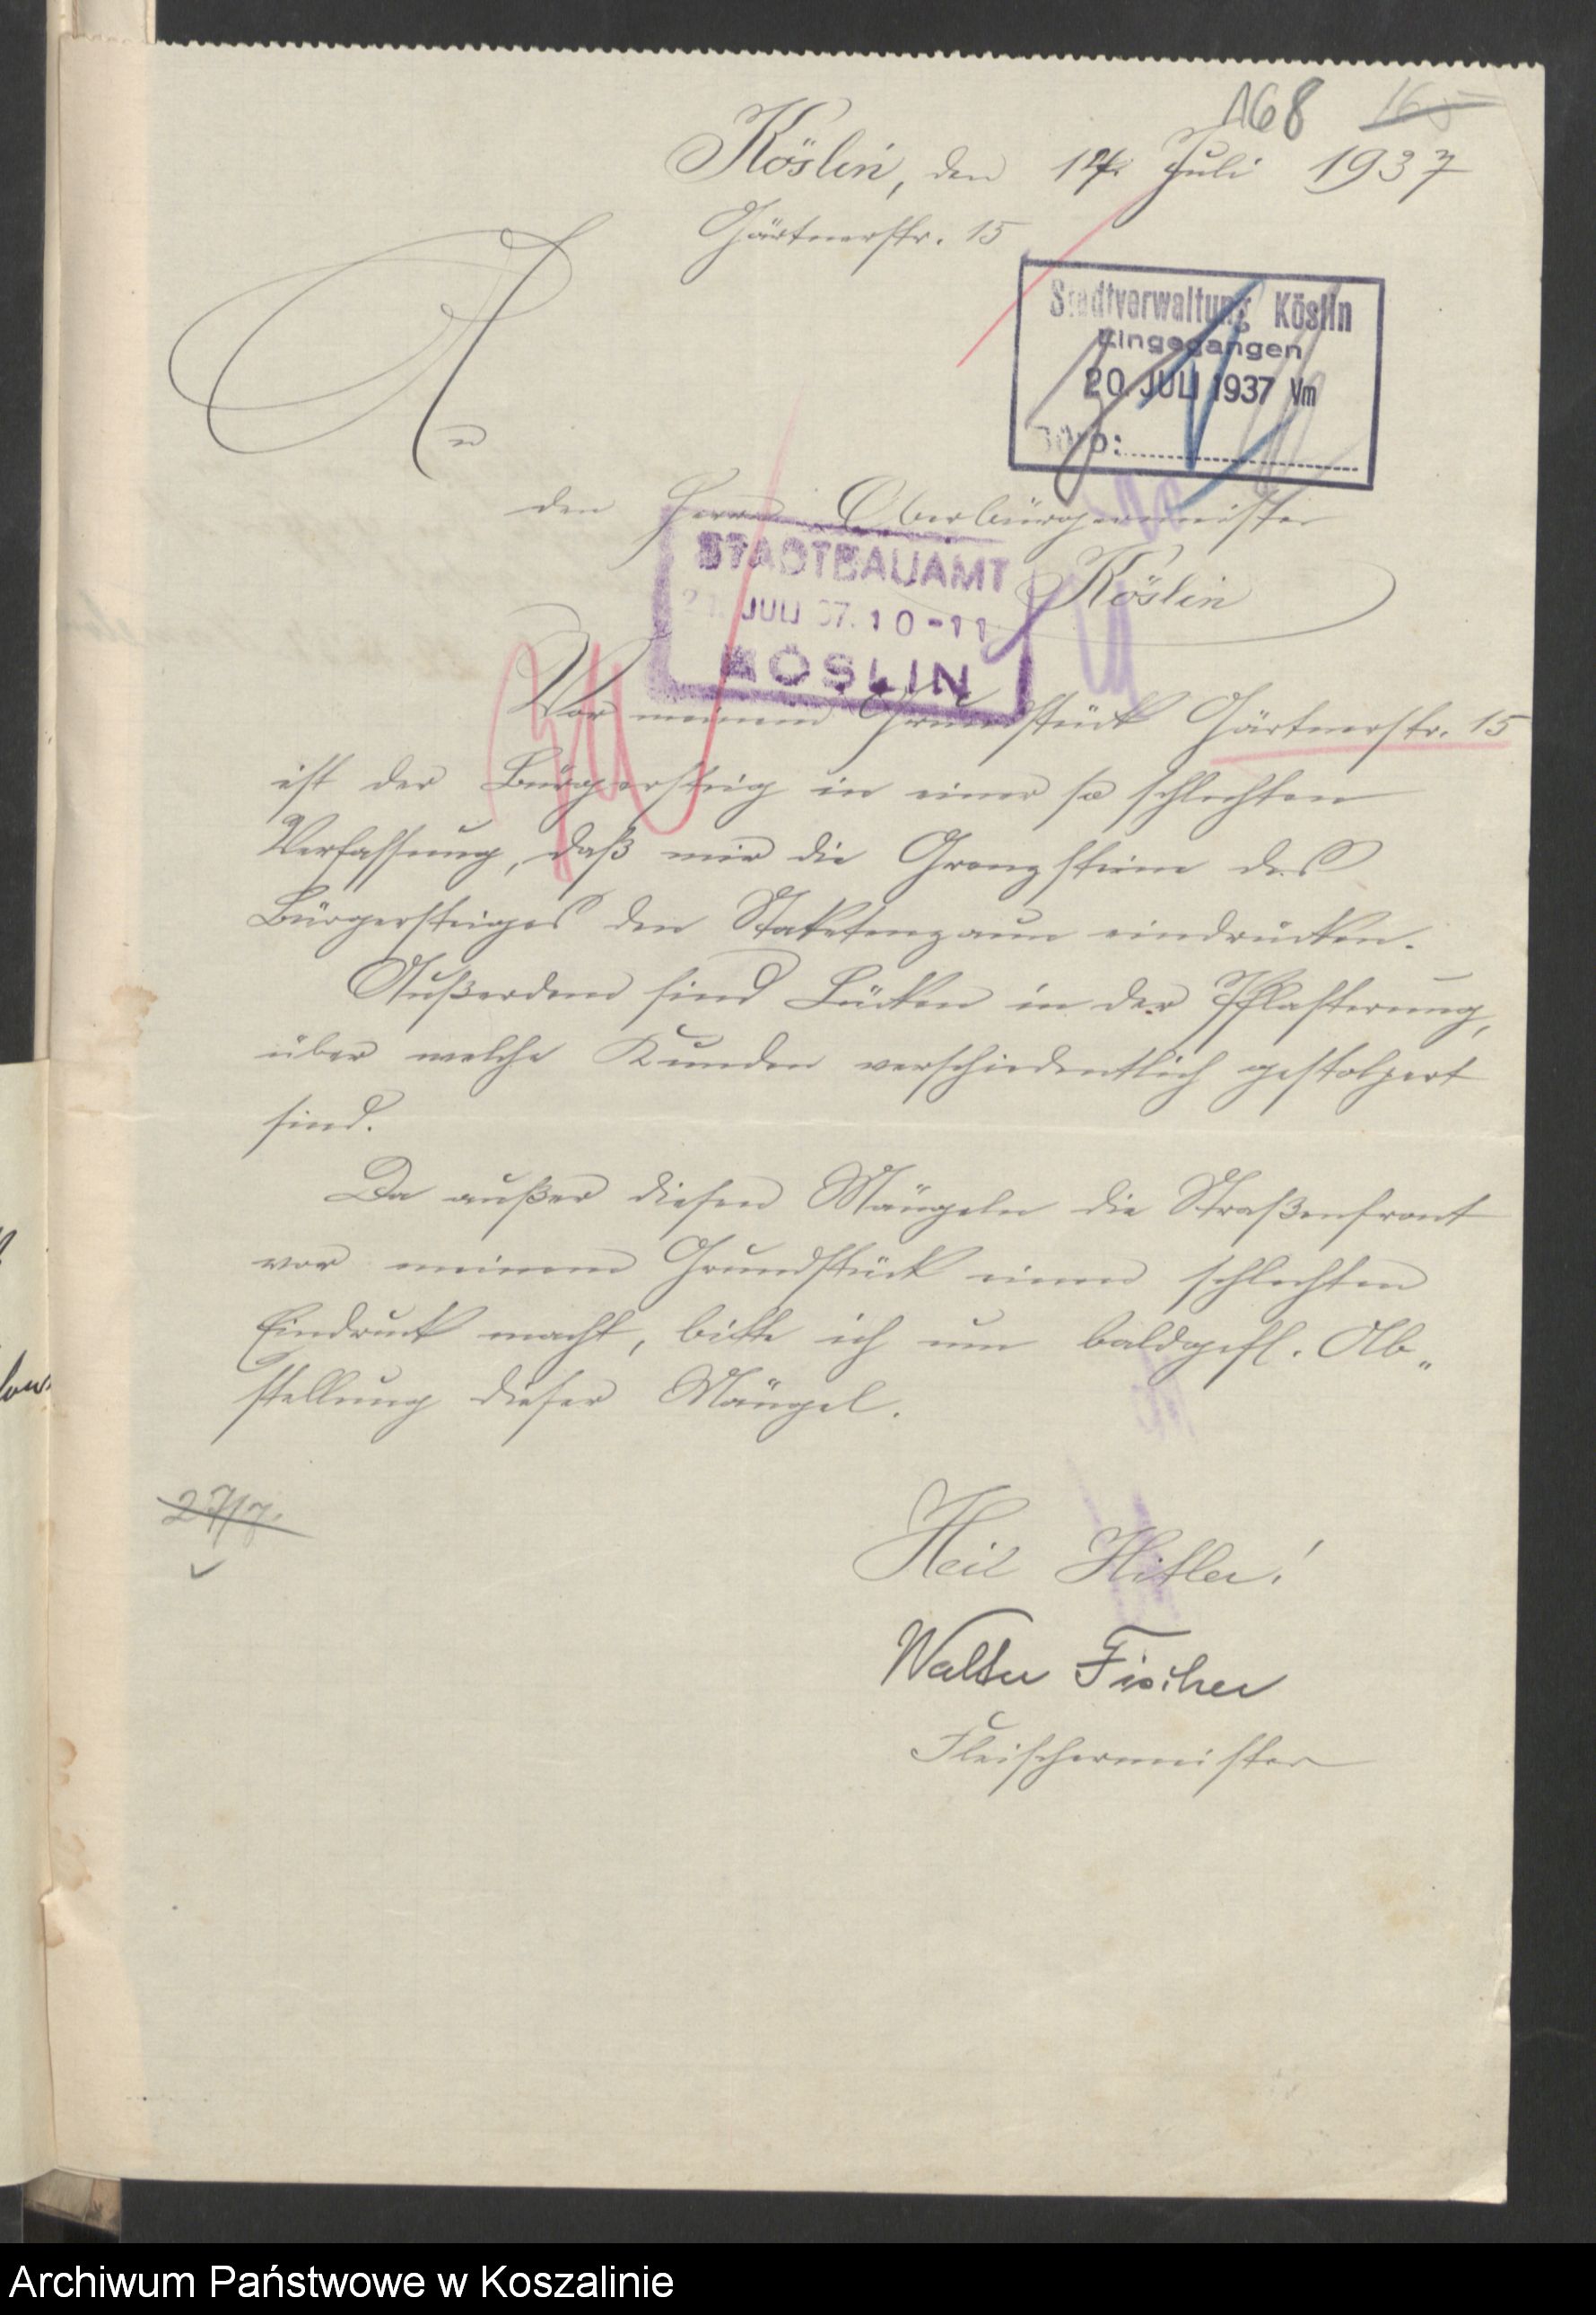 168 165
Köslin, den 14. Juli 1937
Gärtnerstr. 15
Stadtverwaltung Köslin
Eingegangen
20. JULI 1937 Vm
Büro:
An
den Herrn Oberbürgermeister
Köslin
STADTBAUAMT
21. JULI 37. 10-11
KÖSLIN
Vor meinem Grundstück Gärtnerstr. 15
ist der Bürgersteig in einer so schlechten
Verfassung, daß mir die Grenzsteine des
Bürgersteiges den Staketenzaun eindrücken.
Außerdem sind Lücken in der Pflasterung,
über welche Kunden verschiedentlich gestolpert
sind.
Da außer diesen Mängeln die Straßenfront
vor meinem Grundstück einen schlechten
Eindruck macht, bitte ich um baldgefl. Ab„
stellung dieser Mängel.
27/7.
Heil Hitler!
Walter Fischer
Fleischermeister
Archiwum Państwowe w Koszalinie